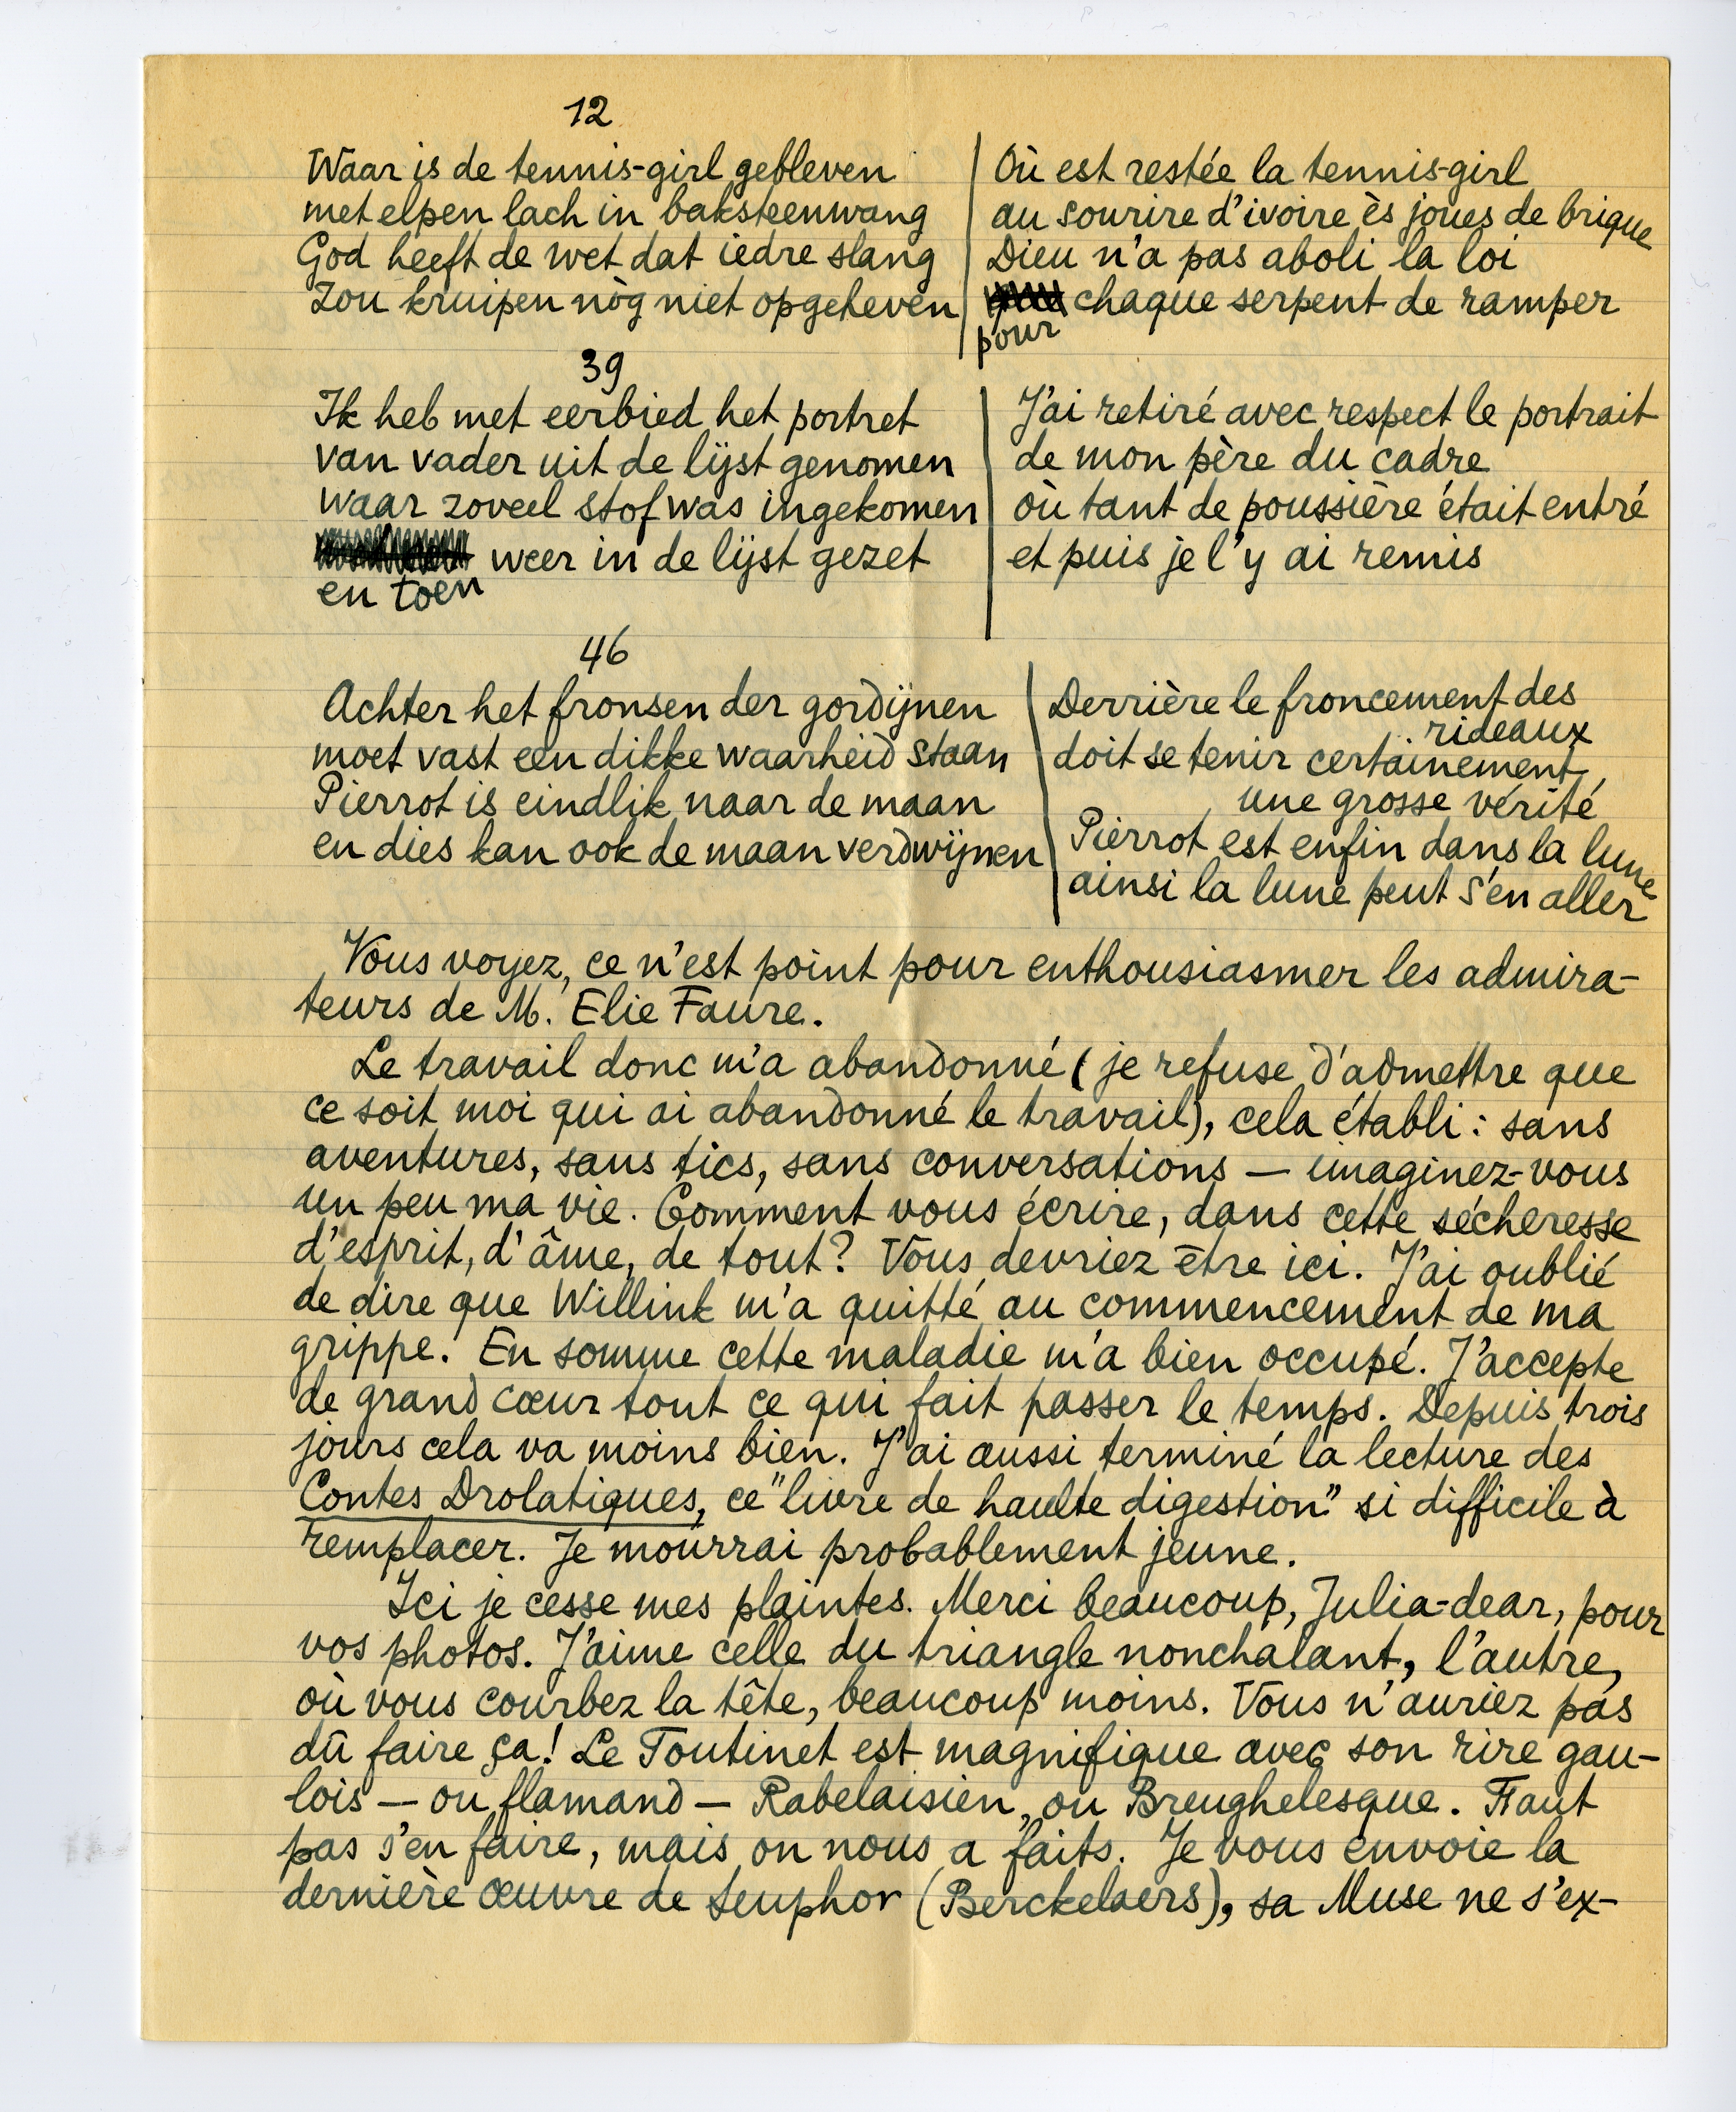 12
Waar is de tennis-girl gebleven
met elpen lach in baksteenwang
God heeft de wet dat iedre slang
zou kruipen nòg niet opgeheven
Où est restée la tennis-girl
au sourire d'ivoire ès joues de brique
Dieu n'a pas aboli la loi
chaque serpent de ramper
pour
39
Ik heb met eerbied het portret
van vader uit de lijst genomen
waar zoveel stof was ingekomen
weer in de lijst gezet
en toen
J'ai retiré avec respect le portrait
de mon père du cadre
où tant de poussière était entré
et puis je l'y ai remis
46
Achter het fronsen der gordijnen
moet vast een dikke waarheid staan
Pierrot is eindlik naar de maan
en dies kan ook de maan verdwijnen
Derrière le froncement des
rideaux
doit se tenir certainement
une grosse vérité
Pierrot est enfin dans la lune
ainsi la lune peut s'en aller
Vous voyez, ce n'est point pour enthousiasmer les admira-
teurs de M. Elie Faure.
Le travail donc m'a abandonné (je refuse d'admettre que
ce soit moi qui ai abandonné le travail), cela établi: sans
aventures, sans tics, sans conversations — imaginez-vous
un peu ma vie. Comment vous écrire, dans cette sécheresse
d'esprit, d'âme, de tout? Vous devriez être ici. J'ai oublié
de dire que Willink m'a quitté au commencement de ma
grippe. En somme cette maladie m'a bien occupé. J'accepte
de grand cœur tout ce qui fait passer le temps. Depuis trois
jours cela va moins bien. J'ai aussi terminé la lecture des
Contes Drolatiques, ce "livre de haulte digestion" si difficile à
remplacer. Je mourrai probablement jeune.
Ici je cesse mes plaintes. Merci beaucoup, Julia-dear, pour
vos photos. J'aime celle du triangle nonchalant, l'autre,
où vous courbez la tête, beaucoup moins. Vous n'auriez pas
dû faire ça! Le Toutinet est magnifique avec son rire gau-
lois — ou flamand — Rabelaisien, ou Breughelesque. Faut
pas s'en faire, mais on nous a faits. Je vous envoie la
dernière œuvre de Seuphor (Berckelaers), sa Muse ne s'ex-